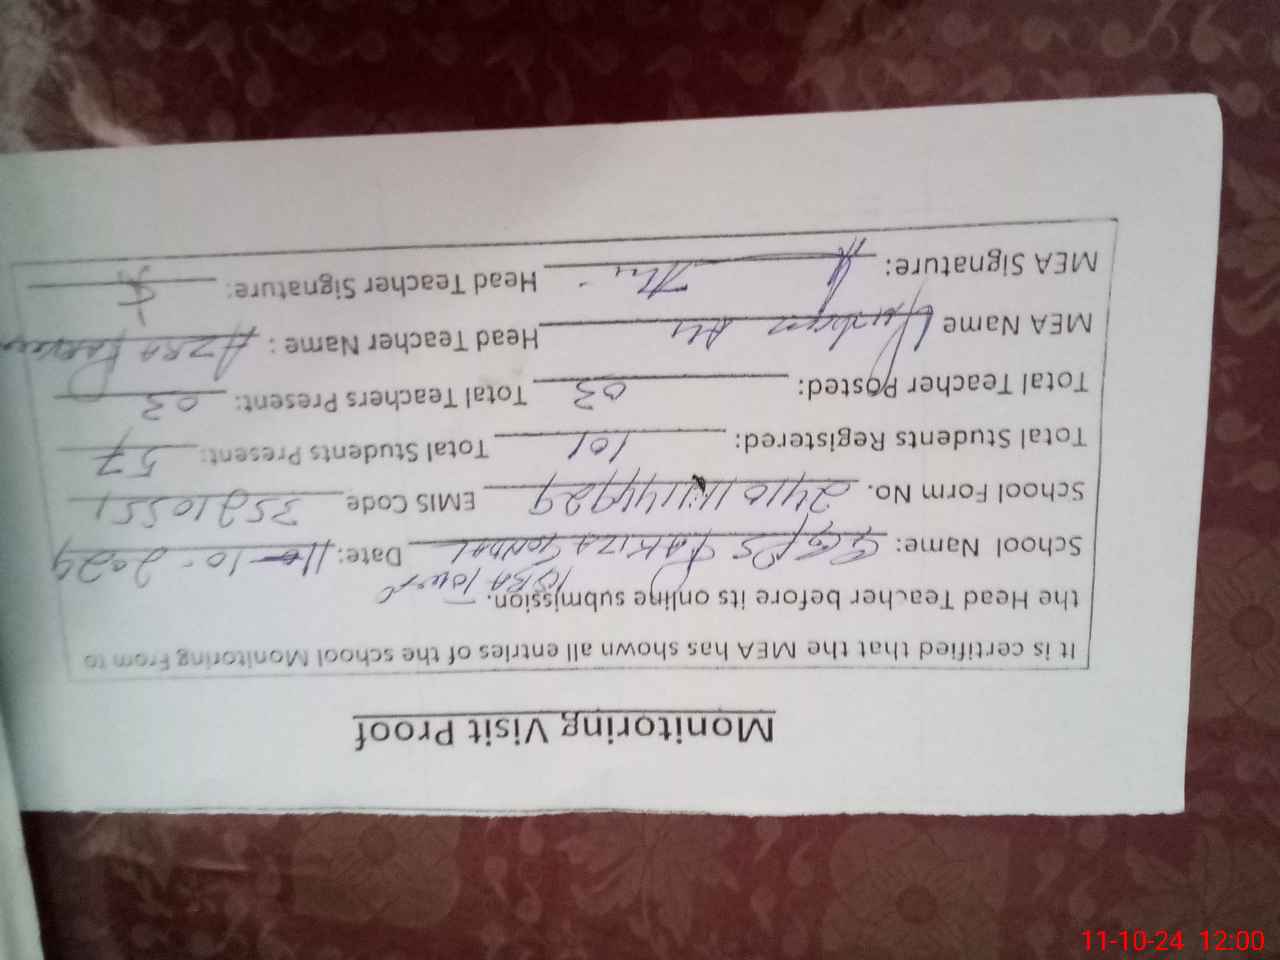 Monitoring Visit Proof
It is certified that the MEA has shown all entries of the school Monitoring From to
the Head Teacher before its online submission.
School Name: GGPS Date: 11-10-2024
School Form No. EMIS Code 35210551
Total Students Registered: 101 Total Students Present: 57
Total Teacher Posted: 03 Total Teachers Present: 03
MEA Name Ali Head Teacher Name: AZRA Parveen
MEA Signature: Head Teacher Signature:
11-10-24 12:00